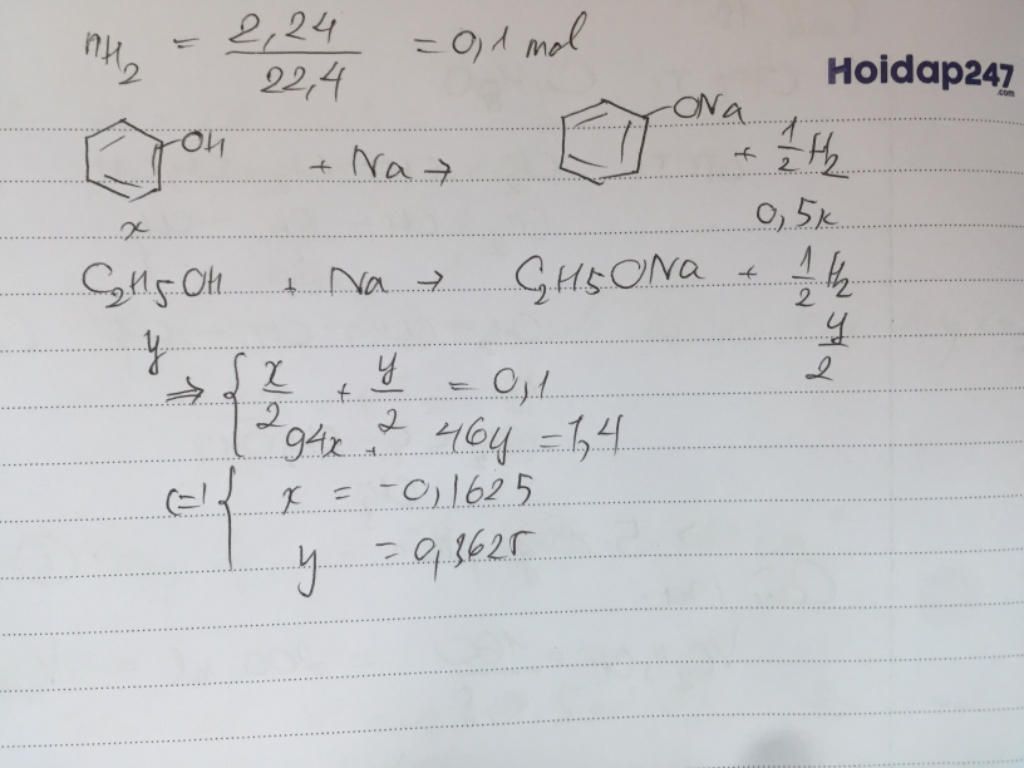 nH2 = 2,24 / 22,4 = 0,1 mol
Hoidap247
.com
OH + Na → ONa + 1/2 H2
x 0,5x
C2H5OH + Na → C2H5ONa + 1/2 H2
y y/2
⇒ { x/2 + y/2 = 0,1
94x + 46y = 1,4
(=) { x = -0,1625
y = 0,3625